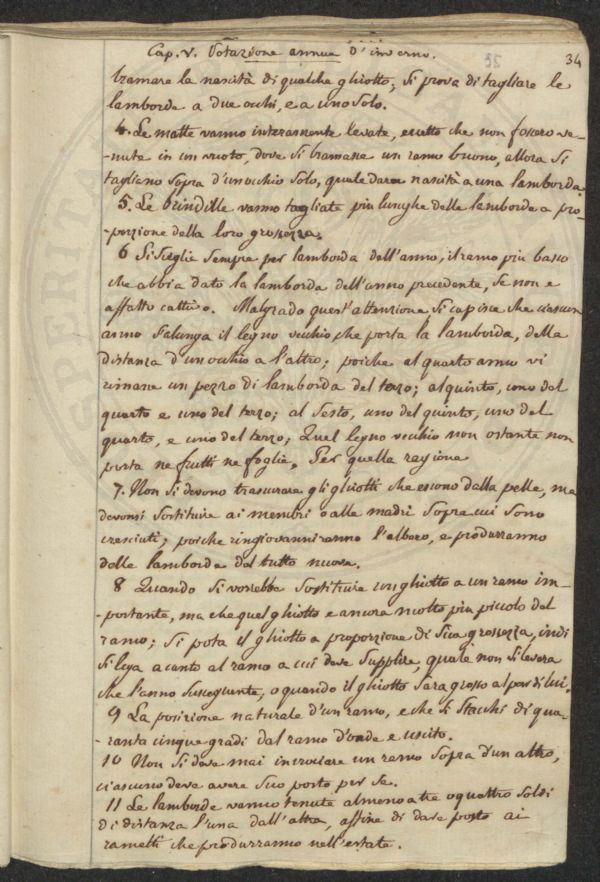 Cap. V. Potazione annua d'inverno. 34
bramare la nascità di qualche ghiotto, si prova di tagliare le
lamborde a due occhi, e a uno solo.
4. Le matte vanno interamente levate, eccetto che non fossero ve-
-nute in un vuoto, dove si bramasse un ramo buono, allora si
tagliano sopra d'un occhio solo, quale darà nascità a una lamborda.
5. Le brindille vanno tagliate più lunghe delle lamborde a pro-
-porzione della loro grossezza.
6 Si sceglie sempre per lamborda dell'anno, il ramo più basso
che abbia dato la lamborda dell'anno precedente, se non e
affatto cattivo. Malgrado quest'attenzione si capisce che ciascun
anno s'alunga il legno vecchio, che porta la lamborda, della
distanza d'un occhio a l'altro; poiche al quarto anno vi
rimane un pezzo di lamborda del terzo; al quinto, uno del
quarto e uno del terzo; al sesto, uno del quinto, uno del
quarto, e uno del terzo; Quel legno vecchio non ostante non
porta ne frutti ne foglie, Per quella ragione
7. Non si devono trascurare gli ghiotti che escono dalla pelle, ma
devonsi sostituire ai membri o alle madri sopra cui sono
cresciuti; poiche ringiovanniranno l'albero, e produrranno
delle lamborde del tutto nuove.
8 Quando si vorebbe sostituire un ghiotto a un ramo im-
-portante, ma che quel ghiotto e ancora molto più piccolo del
ramo; si pota il ghiotto a proporzione di sua grossezza, indi
si lega a canto al ramo a cui deve supplire, quale non si levera
che l'anno susseguente, o quando il ghiotto sara grosso al par di lui.
9 La posizione naturale d'un ramo, e che si stacchi di qua-
-ranta cinque gradi dal ramo d'onde e uscito.
10 Non si deve mai incrociare un ramo sopra d'un altro,
ciascuno deve avere suo posto per se.
11 Le lamborde vanno tenute almeno a tre o quattro soldi
di distanza l'una dall'altra, affine di dare posto ai
rametti che produrranno nell'estate.